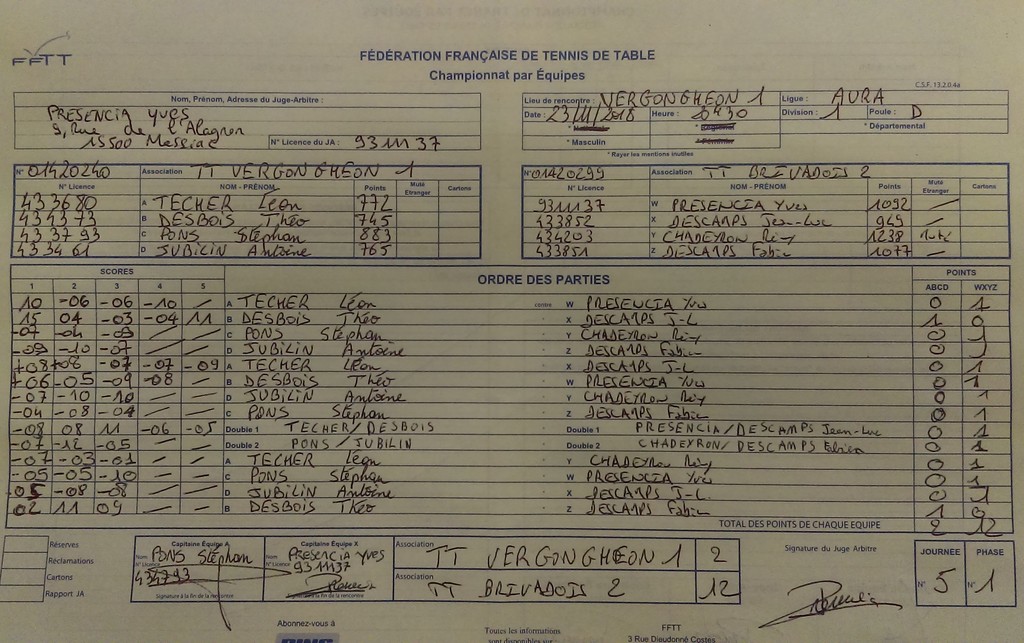 FFTT
FÉDÉRATION FRANÇAISE DE TENNIS DE TABLE
Championnat par Équipes
C.S.F. 13.2.0.4a
Nom, Prénom, Adresse du Juge-Arbitre :
PRESENCIA YVES
9, Rue de l'Alagnon
15500 Massiac
N° Licence du JA : 9311137
Lieu de rencontre : VERGONGHEON 1 Ligue : AURA
Date : 23/11/2018 Heure : 20H30 Division : 1 Poule : D
* Départemental
* Masculin
* Rayer les mentions inutiles
N° 01420240 Association TT VERGONGHEON 1
N° Licence NOM - PRÉNOM Points Muté Etranger Cartons
433680 A TECHER Léon 772
434373 B DESBOIS Théo 745
433793 C PONS Stéphan 883
433461 D JUBILIN Antoine 765
N° 01420299 Association TT BRIVADOIS 2
N° Licence NOM - PRÉNOM Points Muté Etranger Cartons
9311137 W PRESENCIA Yves 1092
433852 X DESCAMPS Jean-Luc 949
434203 Y CHADEYRON Rémy 1238 Muté
433851 Z DESCAMPS Fabien 1077
SCORES ORDRE DES PARTIES POINTS
1 2 3 4 5 ABCD WXYZ
10 -06 -06 -10 / A TECHER Léon contre W PRESENCIA Yves 0 1
15 04 -03 -04 11 B DESBOIS Théo X DESCAMPS J-L 1 0
-07 -04 -09 / / C PONS Stéphan Y CHADEYRON Rémy 0 1
-09 -10 -07 / / D JUBILIN Antoine Z DESCAMPS Fabien 0 1
+08 +08 -07 -07 -09 A TECHER Léon X DESCAMPS J-L 0 1
+06 -05 -09 -08 / B DESBOIS Théo W PRESENCIA Yves 0 1
-07 -10 -10 / / D JUBILIN Antoine Y CHADEYRON Rémy 0 1
-04 -08 -04 / / C PONS Stéphan Z DESCAMPS Fabien 0 1
-08 08 11 -06 -05 Double 1 TECHER/DESBOIS Double 1 PRESENCIA/DESCAMPS Jean-Luc 0 1
-07 -12 -05 / / Double 2 PONS/JUBILIN Double 2 CHADEYRON/DESCAMPS Fabien 0 1
-07 -03 -01 / / A TECHER Léon Y CHADEYRON Rémy 0 1
-05 -05 -10 / / C PONS Stéphan W PRESENCIA Yves 0 1
-05 -08 -08 / / D JUBILIN Antoine X DESCAMPS J-L. 0 1
02 11 09 / / B DESBOIS Théo Z DESCAMPS Fabien 1 0
TOTAL DES POINTS DE CHAQUE EQUIPE 2 12
Réserves
Réclamations
Cartons
Rapport JA
Capitaine Équipe A
Nom PONS Stéphan
N° Licence
Signature à la fin de la rencontre
Capitaine Équipe X
Nom PRESENCIA YVES
N° Licence 9311137
Signature à la fin de la rencontre
Association TT VERGONGHEON 1 2
Association TT BRIVADOIS 2 12
Signature du Juge Arbitre
JOURNÉE PHASE
N° 5 N° 1
Abonnez-vous à
Toutes les informations
sont disponibles sur
FFTT
3 Rue Dieudonné Costes